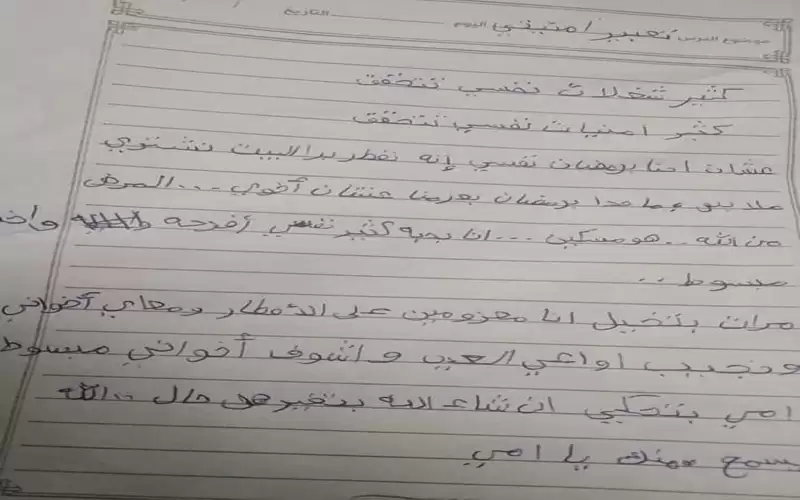 موضوع الدرس تعبير امتيتي اليوم التاريخ
كثير شغلات نفسي تتحقق
كثير امنيات نفسي تتحقق
عشان احنا برمضان نفسي إنه نفطر برا البيت نشتوي
حدا برمضان بعزمنا عنشان أخوي ... المرض
من الله .. هو مسكين ... انا بحبه كثير نفسي أفرحه
مبسوط ..
مرات بتخيل انا معزومين على الافطار ومعاي أخواني
ونجيب اواعي العيد واشوف أخواني مبسوط
امي بتحكي ان شاء الله بتغير هل حال .. الله
يسمع منك يا امي